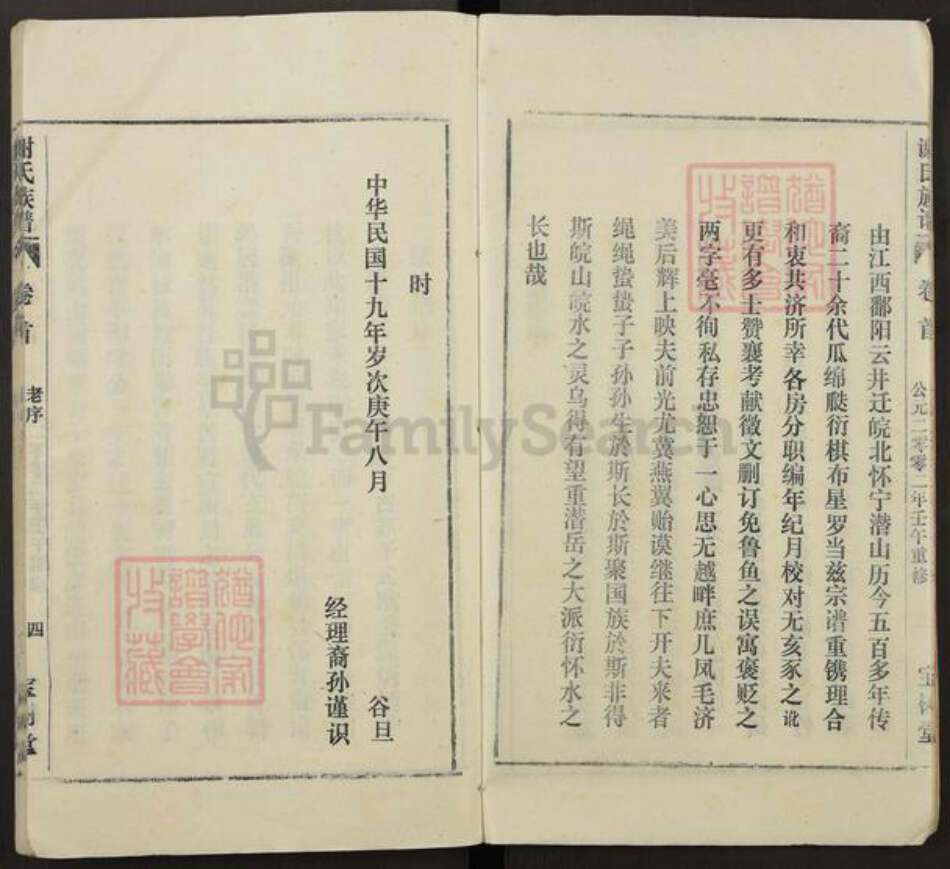 谢氏族谱 卷首 公元二零零二年壬午重修 宝树堂
由江西鄱阳云井迁皖北怀宁潜山历今五百多年传
裔二十余代瓜绵瓞衍棋布星罗当兹宗谱重镌理合
和衷共济所幸各房分职编年纪月校对无亥豕之讹
更有多士赞襄考献徵文删订免鲁鱼之误寓褒贬之
两字毫不徇私存忠恕于一心思无越畔庶几凤毛济
美后辉上映夫前光尤冀燕翼贻谟继往下开夫来者
绳绳蛰蛰子子孙孙生於斯长於斯聚国族於斯非得
斯皖山皖水之灵乌得有望重潜岳之大派衍怀水之
长也哉
时
中华民国十九年岁次庚午八月 谷旦
经理裔孙谨识
谢氏族谱 卷首 老序 四 宝树堂
犹他家
谱学会
收藏
犹他家
谱学会
收藏
FamilySearch